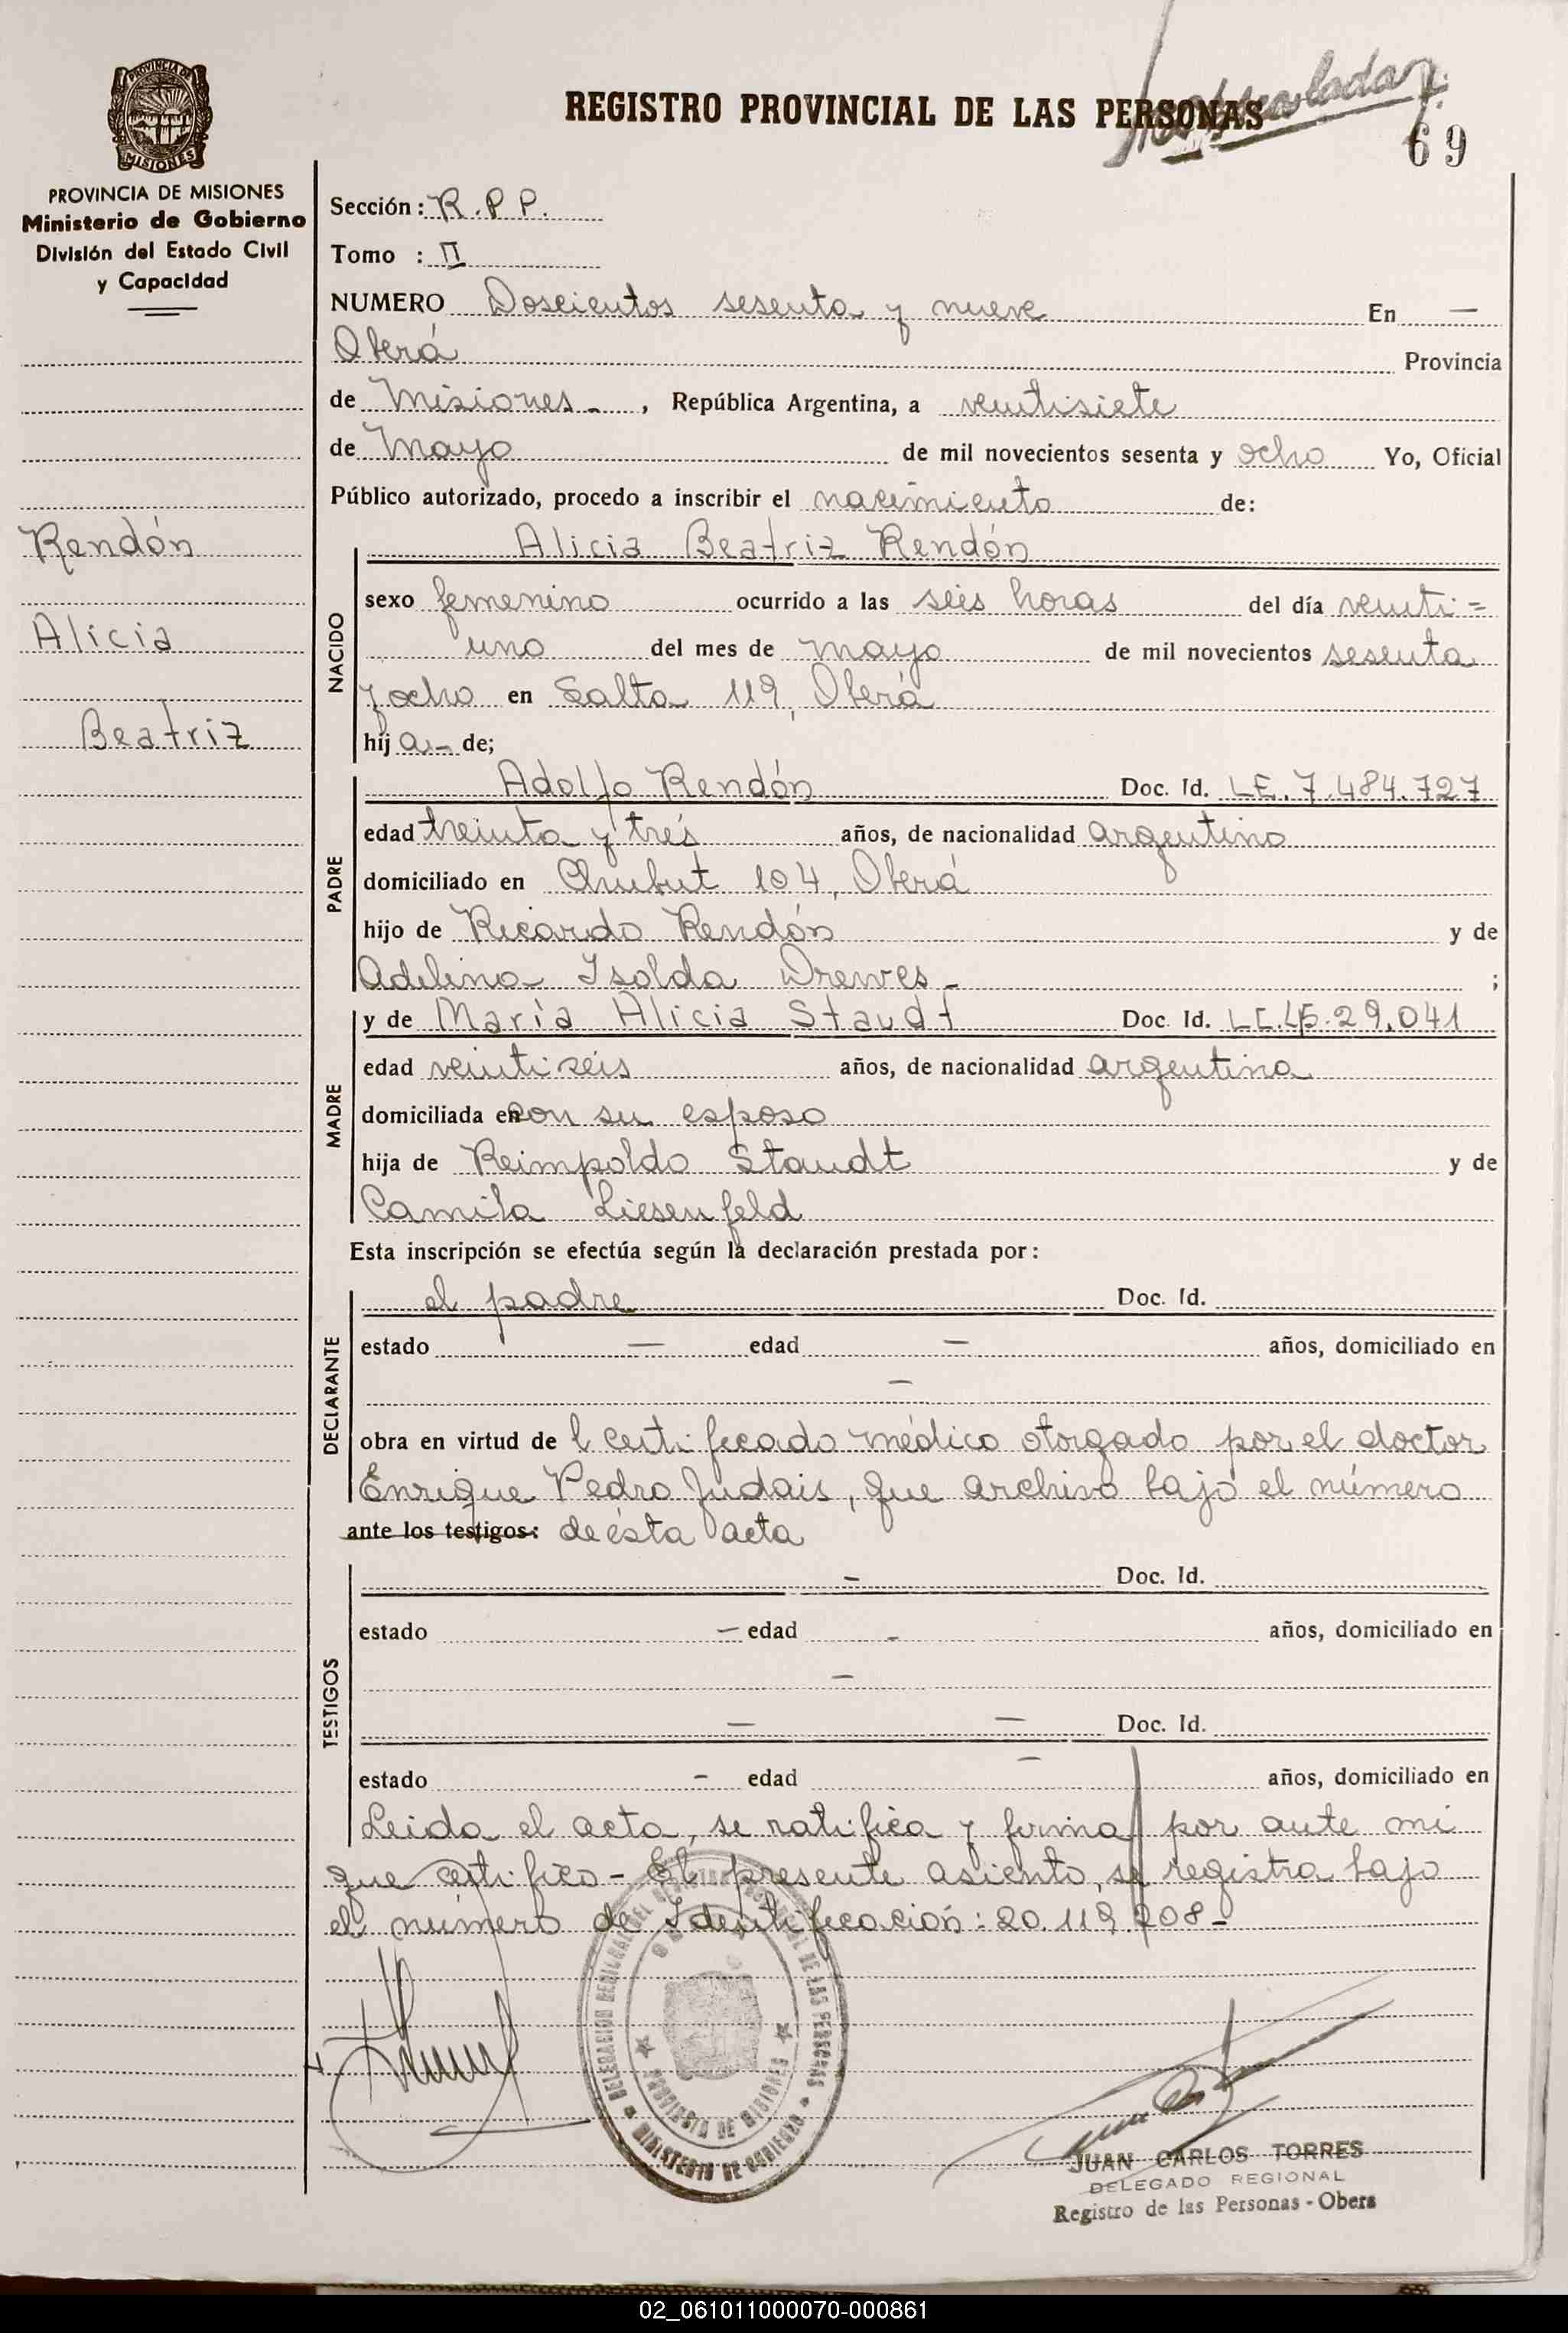 REGISTRO PROVINCIAL DE LAS PERSONAS
69
PROVINCIA DE MISIONES
PROVINCIA DE MISIONES
Ministerio de Gobierno
División del Estado Civil
y Capacidad
Rendón
Alicia
Beatriz
Sección: R.P.P.
Tomo : II
NUMERO Doscientos sesenta y nueve En —
Oberá Provincia
de Misiones - , República Argentina, a veintisiete
de Mayo de mil novecientos sesenta y ocho Yo, Oficial
Público autorizado, procedo a inscribir el nacimiento de:
Alicia Beatriz Rendón
NACIDO
sexo femenino ocurrido a las séis horas del día veinti=
uno del mes de mayo de mil novecientos sesenta
y ocho en Salta 119, Oberá
hij a - de;
PADRE
Adolfo Rendón Doc. Id. LE. 7.484.727
edad treinta y trés años, de nacionalidad argentino
domiciliado en Chubut 104, Oberá
hijo de Ricardo Rendón y de
Adelina Isolda Drewes - ;
MADRE
y de María Alicia Staudt Doc. Id. LC. 29.041
edad veintiséis años, de nacionalidad argentina
domiciliada en con su esposo
hija de Reimpoldo Staudt y de
Camila Liesenfeld
Esta inscripción se efectúa según la declaración prestada por:
DECLARANTE
el padre Doc. Id.
estado — edad — años, domiciliado en
—
obra en virtud de l certificado médico otorgado por el doctor
Enrique Pedro Judais, que archivo bajo el número
ante los testigos: de ésta acta
TESTIGOS
- Doc. Id.
estado — edad - años, domiciliado en
—
— — Doc. Id.
estado - edad — años, domiciliado en
Leida el acta, se ratifica y firma por ante mi
que certifico - El presente asiento, se registra bajo
el número de Identificación: 20.119.208-
DELEGACION REGIONAL DEL REGISTRO PROVINCIAL DE LAS PERSONAS
PROVINCIA DE MISIONES
MINISTERIO DE GOBIERNO
JUAN CARLOS TORRES
DELEGADO REGIONAL
Registro de las Personas - Obera
02_061011000070-000861